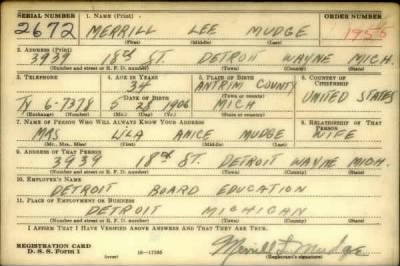 SERIAL NUMBER 1. NAME (Print) ORDER NUMBER
2672 MERRILL LEE MUDGE 1955
(First) (Middle) (Last)
2. ADDRESS (Print)
3939 18th ST. DETROIT WAYNE MICH.
(Number and street or R. F. D. number) (Town) (County) (State)
3. TELEPHONE 4. AGE IN YEARS 5. PLACE OF BIRTH 6. COUNTRY OF CITIZENSHIP
34 ANTRIM COUNTY
DATE OF BIRTH (Town or county)
TY 6-7378 5 28 1906 MICH UNITED STATES
(Exchange) (Number) (Mo.) (Day) (Yr.) (State or country)
7. NAME OF PERSON WHO WILL ALWAYS KNOW YOUR ADDRESS 8. RELATIONSHIP OF THAT PERSON
MRS LILA ANICE MUDGE WIFE
(Mr., Mrs., Miss) (First) (Middle) (Last)
9. ADDRESS OF THAT PERSON
3939 18th ST. DETROIT WAYNE MICH.
(Number and street or R. F. D. number) (Town) (County) (State)
10. EMPLOYER'S NAME
DETROIT BOARD EDUCATION
11. PLACE OF EMPLOYMENT OR BUSINESS
DETROIT MICHIGAN
(Number and street or R. F. D. number) (Town) (County) (State)
I AFFIRM THAT I HAVE VERIFIED ABOVE ANSWERS AND THAT THEY ARE TRUE.
REGISTRATION CARD
D. S. S. Form 1 (over) 16—17105 Merrill L. Mudge
(Registrant's signature)